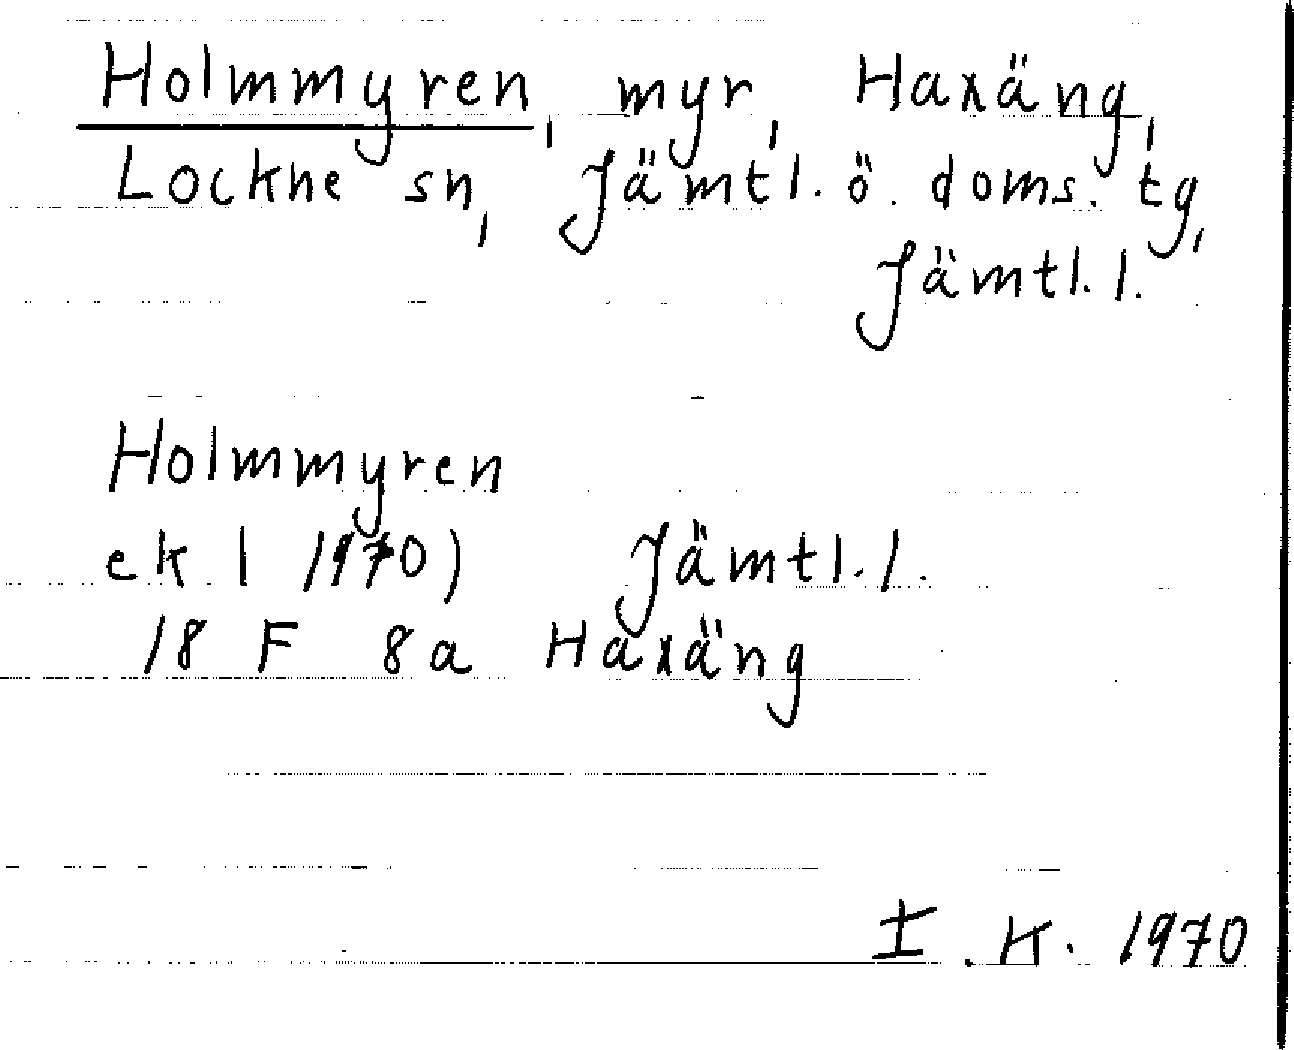 Holmmyren, myr, Haxäng,
Lockne sn, Jämtl. ö. doms. tg,
Jämtl. l.
Holmmyren
ek ( 1970) Jämtl. l.
18 F 8a Haxäng
I. K. 1970